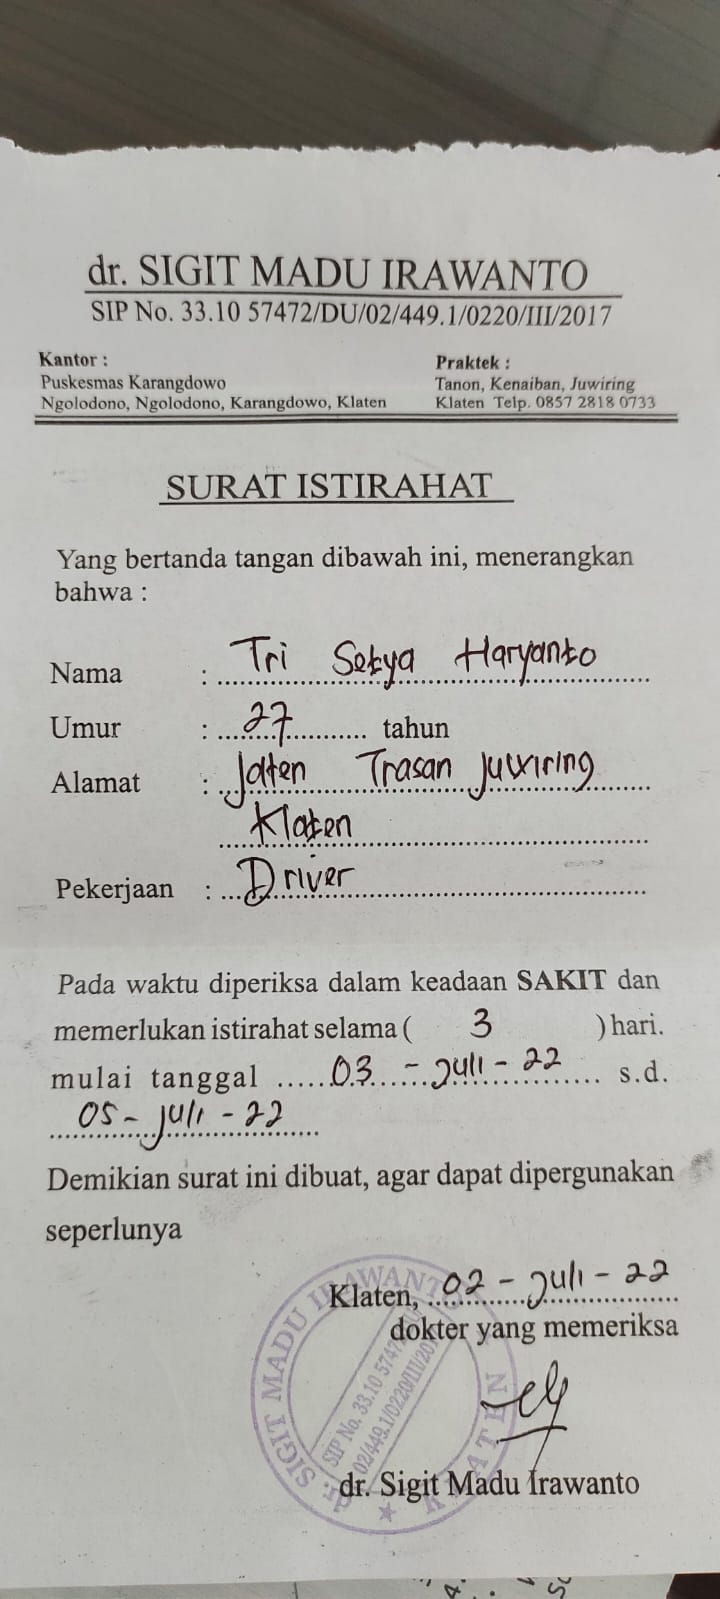 dr. SIGIT MADU IRAWANTO
SIP No. 33.10 57472/DU/02/449.1/0220/III/2017
Kantor :
Puskesmas Karangdowo
Ngolodono, Ngolodono, Karangdowo, Klaten
Praktek :
Tanon, Kenaiban, Juwiring
Klaten Telp. 0857 2818 0733
SURAT ISTIRAHAT
Yang bertanda tangan dibawah ini, menerangkan
bahwa :
Nama : Tri Setya Haryanto
Umur : 27 tahun
Alamat : Jaten Trasan Juwiring
Klaten
Pekerjaan : Driver
Pada waktu diperiksa dalam keadaan SAKIT dan
memerlukan istirahat selama ( 3 ) hari.
mulai tanggal 03 - Juli - 22 s.d.
05 - Juli - 22
Demikian surat ini dibuat, agar dapat dipergunakan
seperlunya
Klaten, 02 - Juli - 22
dokter yang memeriksa
dr. Sigit Madu Irawanto
dr. SIGIT MADU IRAWANTO
SIP No. 33.10 57472
02/449.1/0220/III/201
KLATEN